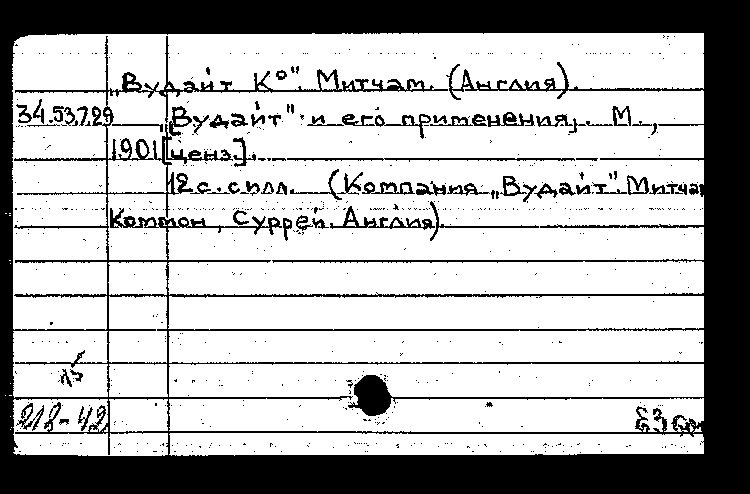 „Вудайт К°". Митчам. (Англия).
34.53.7.29 „[Вудайт" и его применения]. М.,
1901 [ценз.].
12 с. с илл. (Компания „Вудайт". Митчам
Коммон, Суррей. Англия).
15
218-42